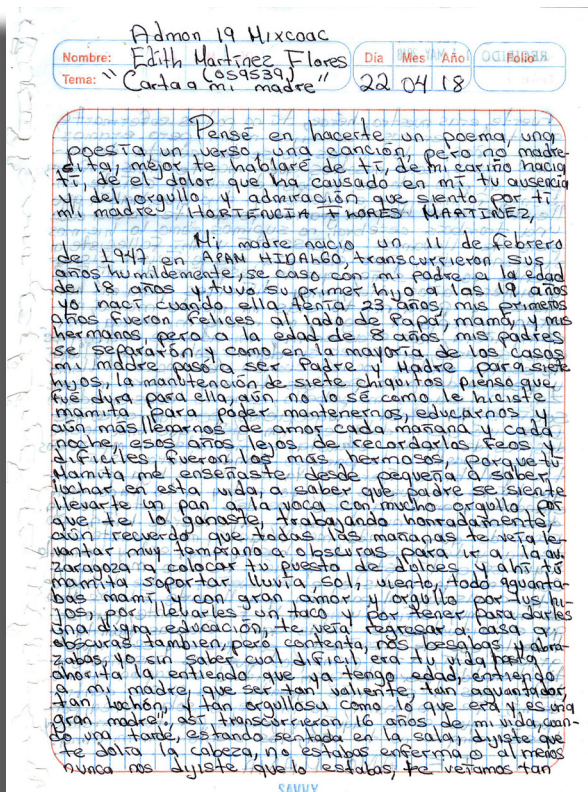 Admon 19 Mixcoac
Nombre: Edith Martínez Flores
(059539)
Tema: "Carta a mi madre"
Día Mes Año Folio
22 04 18
Pensé en hacerte un poema, una
poesía un verso una canción, pero no madre-
cita, mejor te hablaré de tí, de mi cariño hacia
tí, de el dolor que ha causado en mí tu ausencia
y del orgullo y admiración que siento por tí
mi madre, HORTENCIA FLORES MARTINEZ,
Mi madre nacio un 11 de febrero
de 1947 en APAN HIDALGO, transcurrieron sus
años humildemente, se caso con mi padre a la edad
de 18 años y tuvo su primer hijo a las 19 años
yo nací cuando ella tenía 23 años mis primeros
años fueron felices al lado de Papá, mamá, y mis
hermanos, pero a la edad de 8 años mis padres
se separarón y como en la mayoría de los casos
mi madre pasó a ser Padre y Madre para siete
hijos, la manutención de siete chiquitos pienso que
fué dura para ella, aún no lo sé como le hiciste
mamita para poder mantenernos, educarnos y
aún más llenarnos de amor cada mañana y cada
noche, esos años lejos de recordarlos feos y
dificiles fueron los más hermosos, porque tú
Mamita me enseñaste desde pequeña a saber
luchar en esta vida, a saber que padre se siente
llevarte un pan a la voca con mucho orgullo por
que te lo ganaste, trabajando honradamente,
aún recuerdo que todas las mañanas te veía le-
vantar muy temprano a obscuras para ir a la av.
zaragoza a colocar tu puesto de dulces y ahí tú
mamita soportar lluvia, sol, viento, todo aguanta-
bas mami y con gran amor y orgullo por tus hi-
jos, por llevarles un taco y por tener para darles
una digna educación, te veía regresar a casa a
obscuras tambien, pero contenta, nos besabas y abra-
zabas, yo sin saber cual dificil era tu vida hasta
ahorita la entiendo que ya tengo edad, entiendo
a mi madre, que ser tan valiente, tan aguantador,
tan luchón, y tan orgullosa como lo que era y es una
gran madre", así transcurrieron 16 años de mi vida, cuan-
do una tarde, estando sentada en la sala, dijiste que
te dolía la cabeza, no estabas enferma o al menos
nunca nos dijiste que lo estabas, te veíamos tan
SAVVY